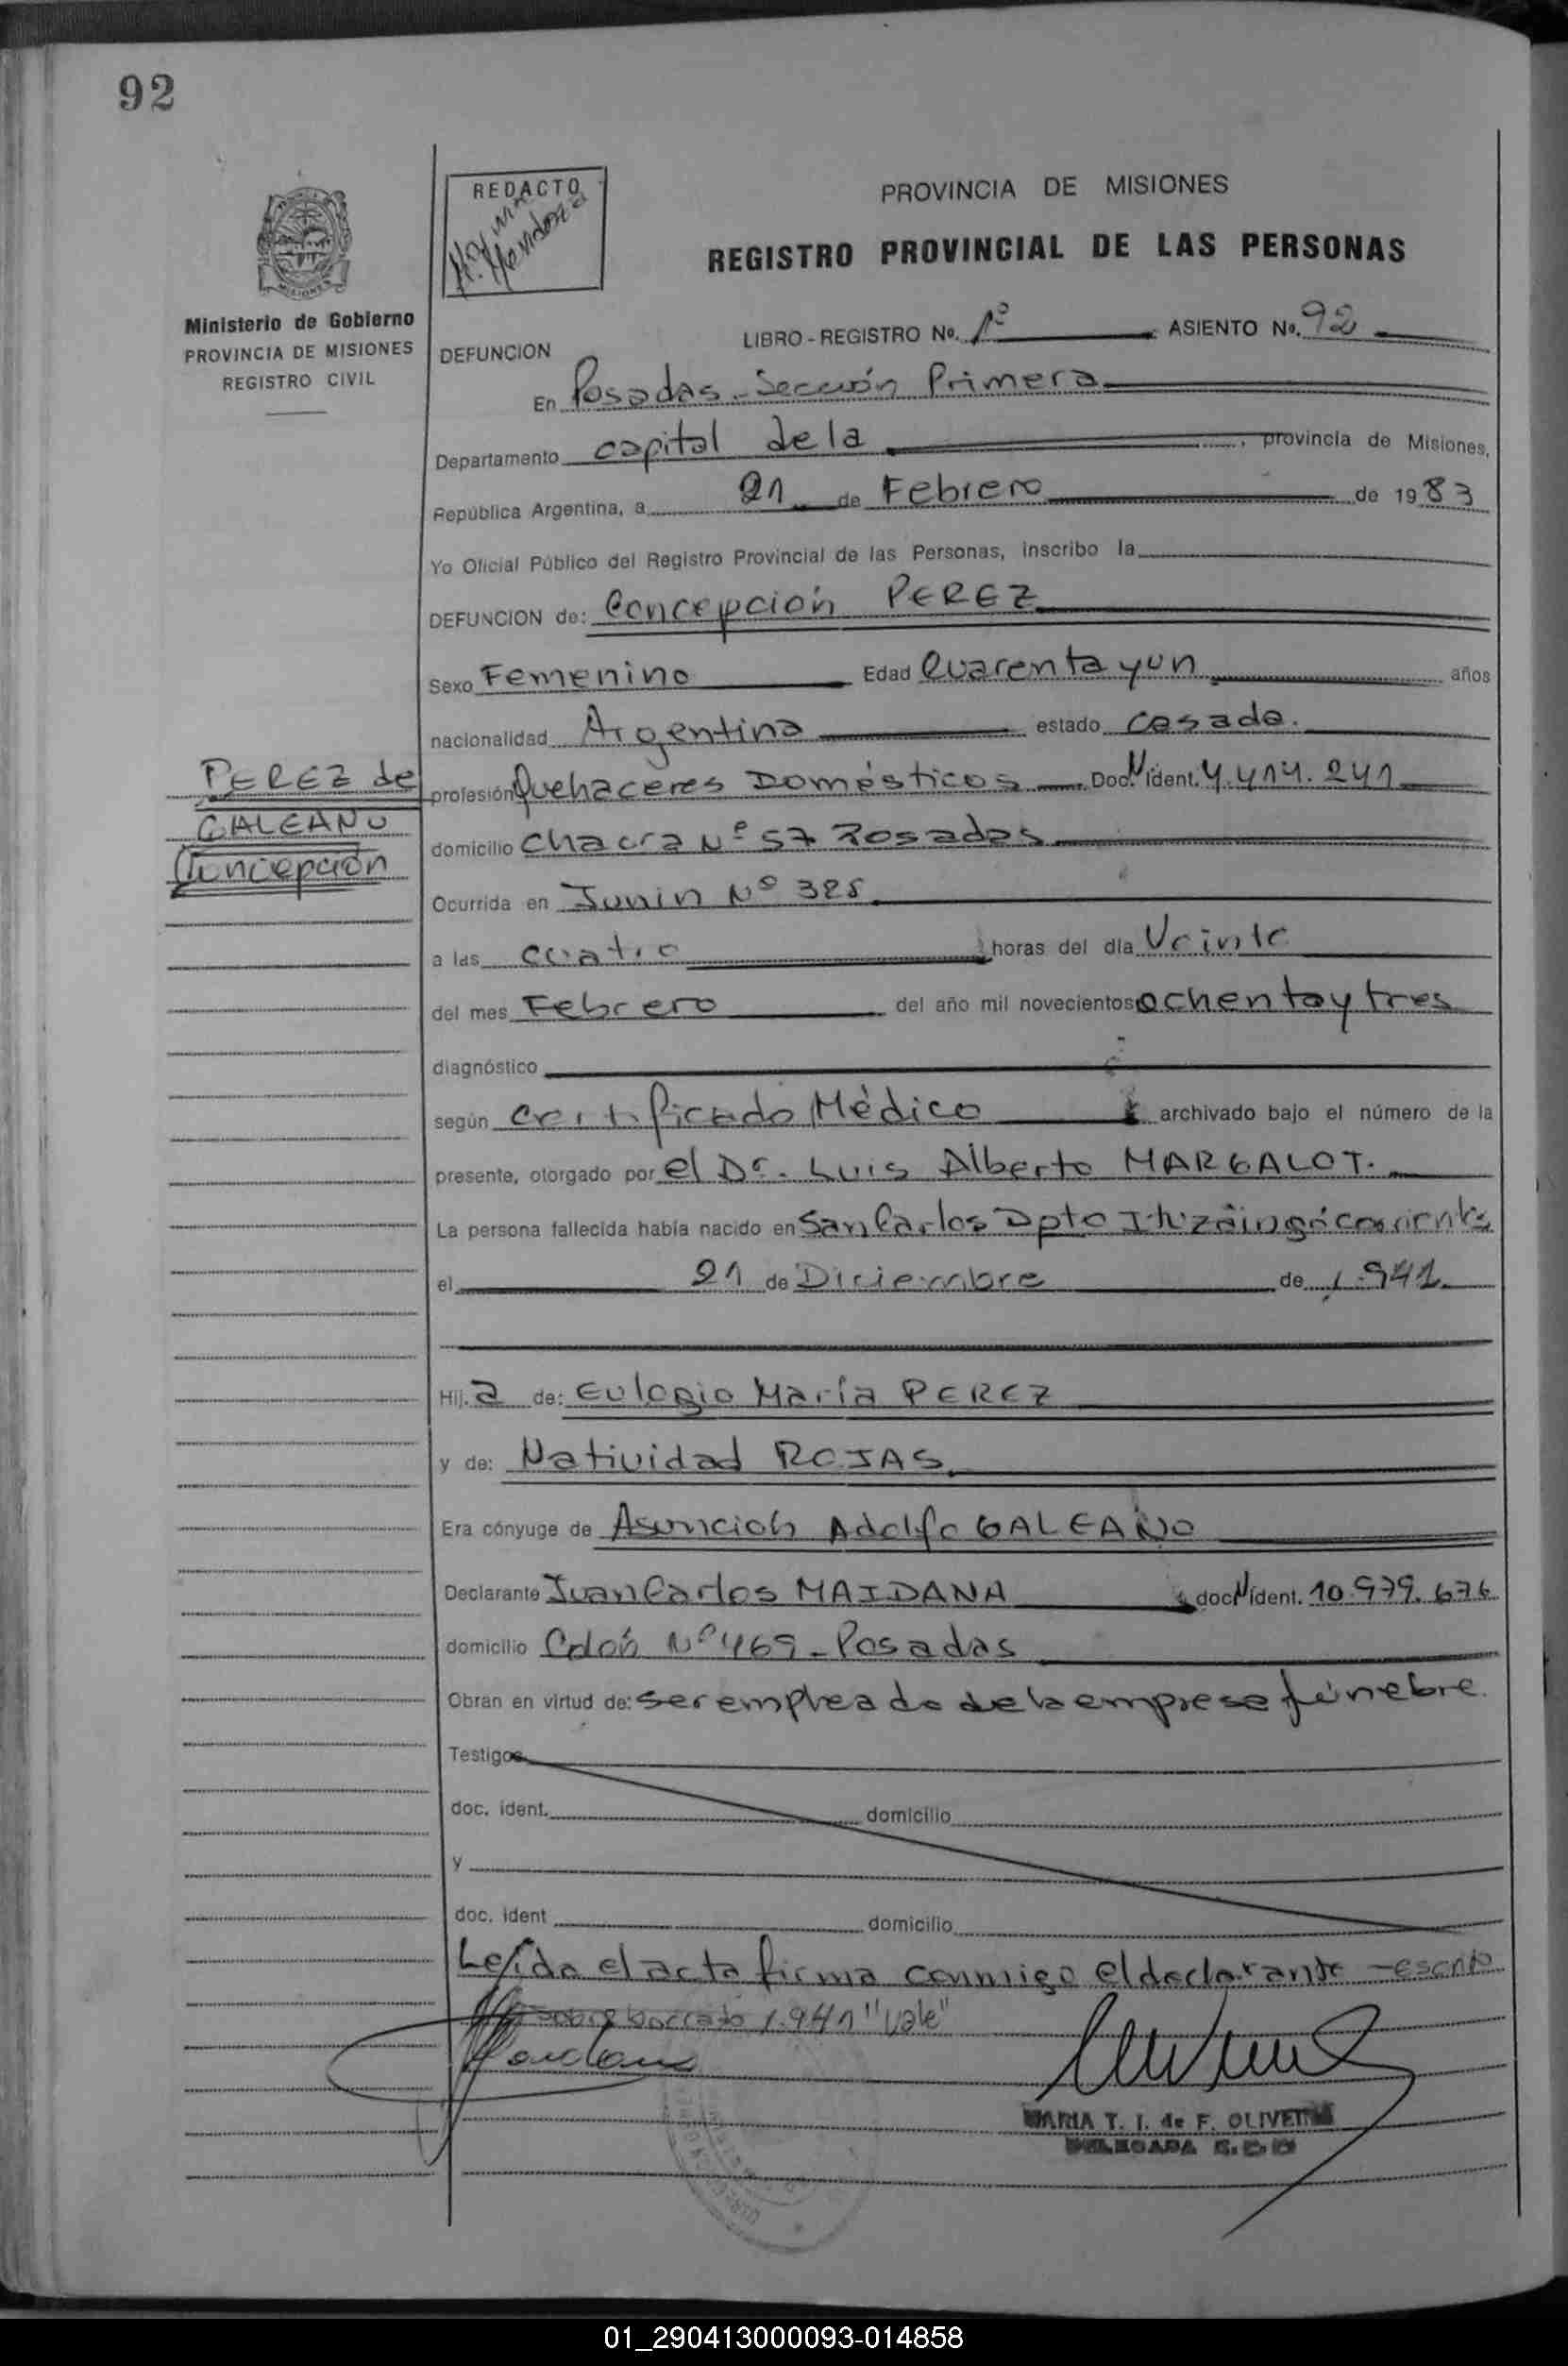 92
REDACTO
Mendoza
PROVINCIA DE MISIONES
REGISTRO PROVINCIAL DE LAS PERSONAS
MISIONES
Ministerio de Gobierno
PROVINCIA DE MISIONES
REGISTRO CIVIL
LIBRO - REGISTRO No. 1º ASIENTO No. 92
DEFUNCION
En Posadas - Sección Primera
Departamento capital de la , provincia de Misiones,
República Argentina, a 21 de Febrero de 1983
Yo Oficial Público del Registro Provincial de las Personas, inscribo la
DEFUNCION de: Concepción PEREZ
Sexo Femenino Edad Cuarenta y un años
nacionalidad Argentina estado casada.
PEREZ de
GALEANO
Concepción
profesión Quehaceres Domésticos Doc. N ident. 4.414.241
domicilio Chacra Nº 57 Posadas
Ocurrida en Junin Nº 385
a las cuatro horas del día Veinte
del mes Febrero del año mil novecientos ochenta y tres
diagnóstico
según certificado Médico archivado bajo el número de la
presente, otorgado por el Dr. Luis Alberto MARGALOT.
La persona fallecida había nacido en San Carlos Dpto Ituzaingó Corrientes
el 21 de Diciembre de 1.941.
Hij.a de: Eulogio María PEREZ
y de: Natividad ROJAS
Era cónyuge de Asunción Adolfo GALEANO
Declarante Juan Carlos MAIDANA doc. N ident. 10.979.676
domicilio Colón Nº 469 - Posadas
Obran en virtud de: ser empleado de la empresa fúnebre.
Testigos
doc. ident. domicilio
y
doc. ident domicilio
Leída el acta firma conmigo el declarante - escrito
sobre borrado 1.941 "Vale"
MARIA T. I. de F. OLIVEIRA
DELEGADA
01_290413000093-014858